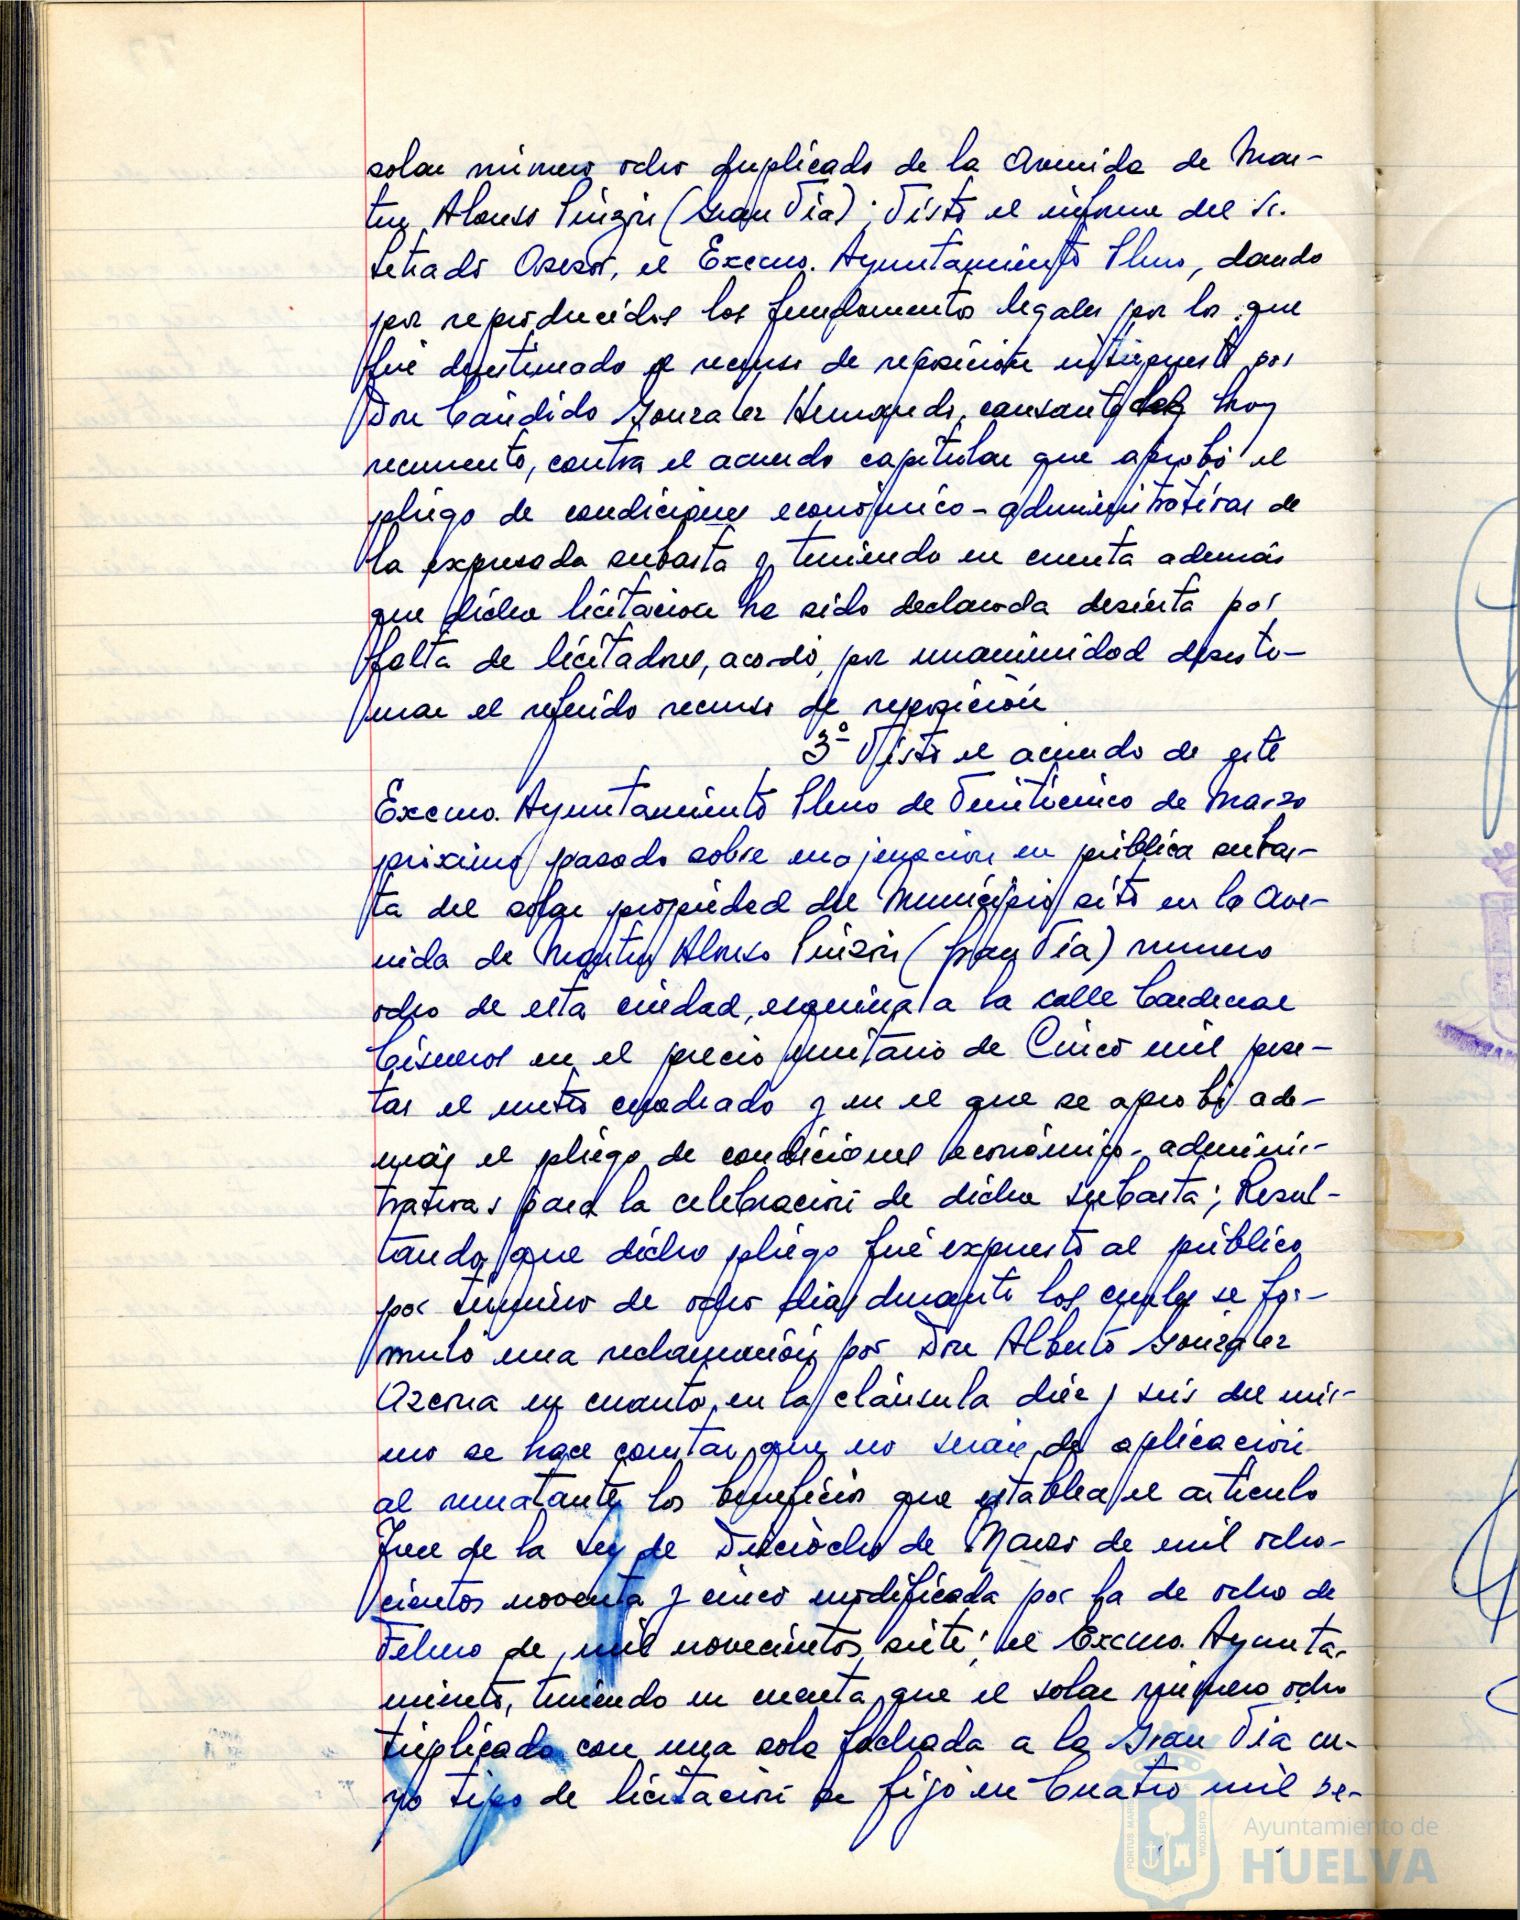 solar número ocho duplicado de la Avenida de Mar-
tin Alonso Pinzón (Gran Vía); Visto el informe del Sr.
Letrado Asesor, el Excmo. Ayuntamiento Pleno, dando
por reproducidos los fundamentos legales por los que
fué desestimado el recurso de reposición interpuesto por
Don Cándido Gonzalez Hernando, causante del hoy
recurrente, contra el acuerdo capitular que aprobó el
pliego de condiciones económico-administrativas de
la expresada subasta y teniendo en cuenta además
que dicha licitacion ha sido declarada desierta por
falta de licitadores, acordó, por unanimidad desesti-
mar el referido recurso de reposición
3º Visto el acuerdo de este
Excmo. Ayuntamiento Pleno de Veinticinco de Marzo
próximo pasado sobre enajenacion en pública subas-
ta del solar propiedad del Municipio sito en la Ave-
nida de Martin Alonso Pinzón (Gran Vía) numero
ocho de esta ciudad, esquina a la calle Cardenal
Cisneros en el precio unitario de Cinco mil pese-
tas el metro cuadrado y en el que se aprobó ade-
más el pliego de condiciones económico-adminis-
trativas para la celebración de dicha subasta; Resul-
tando, que dicho pliego fué expuesto al público
por término de ocho dias durante los cuales se for-
muló una reclamación por Don Alberto Gonzalez
Azcona en cuanto, en la cláusula diez y seis del mis-
mo se hace constar que no serán de aplicación
al rematante los beneficios que establece el artículo
Trece de la Ley de Dieciocho de Marzo de mil ocho-
cientos noventa y cinco modificada por la de ocho de
Febrero de mil novecientos siete; el Excmo. Ayunta-
miento, teniendo en cuenta que el solar número ocho
triplicado con una sola fachada a la Gran Vía cu-
yo tipo de licitación se fijó en Cuatro mil se-
Ayuntamiento de
HUELVA